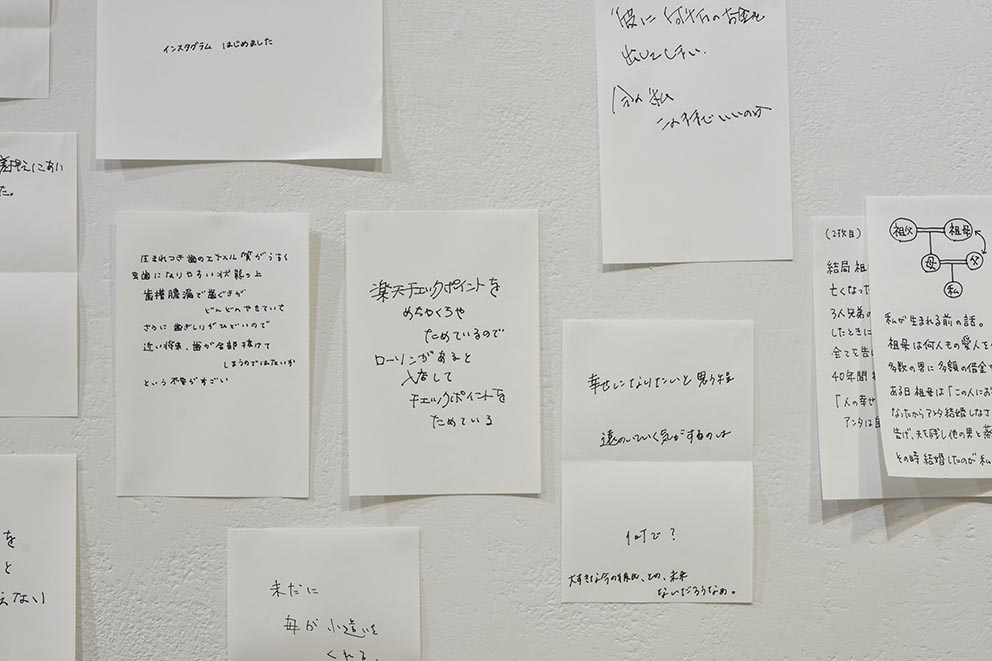 インスタグラム はじめました
彼に 何かのお金を
出してしまい、
今の私
このままでいいのか
差押えにあい
た。
生まれつき歯のエナメル質がうすく
虫歯になりやすい状態の上
歯槽膿漏で歯ぐきが
どんどんやせていて
さらに 歯ぎしりがひどいので
近い将来、歯が全部抜けて
しまうのではないか
という不安がすごい
楽天チェックポイントを
めちゃくちゃ
ためているので
ローソンがあると
入店して
チェックポイントを
ためている
幸せになりたいと思う程
遠のいていく気がするのは
何で?
大すきな今の彼氏、との、未来
ないだろうなあ。
(2枚目)
結局 祖
亡くなった
3人兄弟の
したときに
全てを告
40年間
「人の幸せ
アンタは
祖父
祖母
母
父
私
私が生まれる前の話。
祖母は何人もの愛人を
多数の男に多額の借金
ある日祖母は「この人にお
なったからアンタ結婚しなさ
告げ、夫を残し他の男と蒸
その時結婚したのが私
を
と
えない
未だに
母が 小遣いを
くれる、